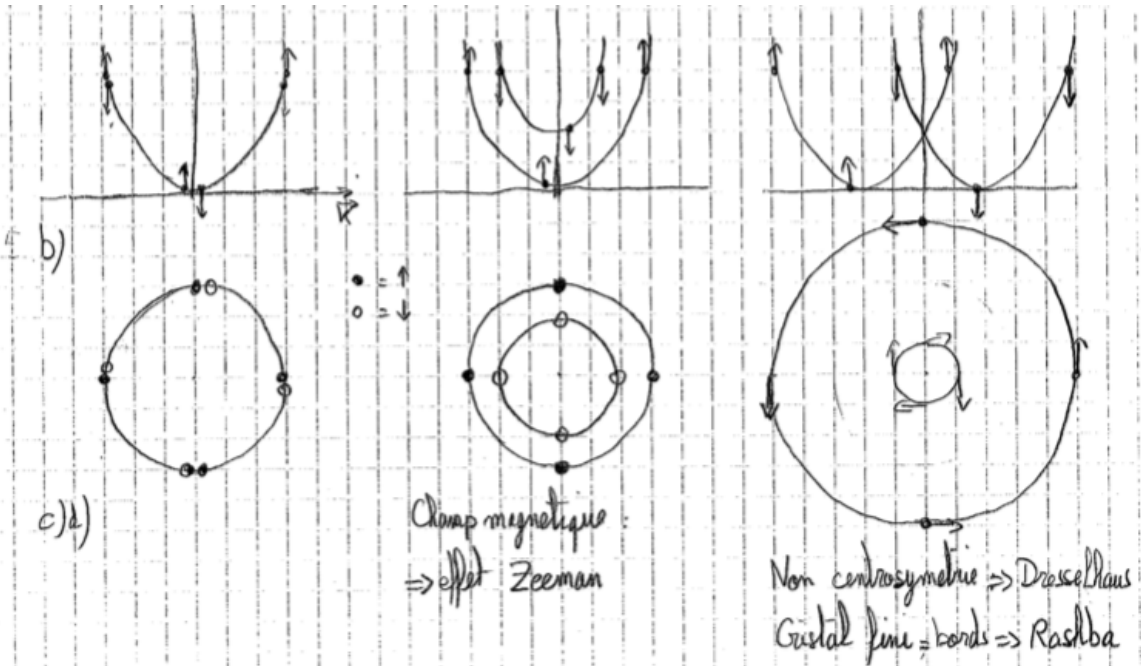 k
b)
● = ↑
○ = ↓
c)d)
Champ magnetique :
⇒ effet Zeeman
Non centrosymetrie ⇒ Dresselhaus
Cristal fine = bords ⇒ Rashba